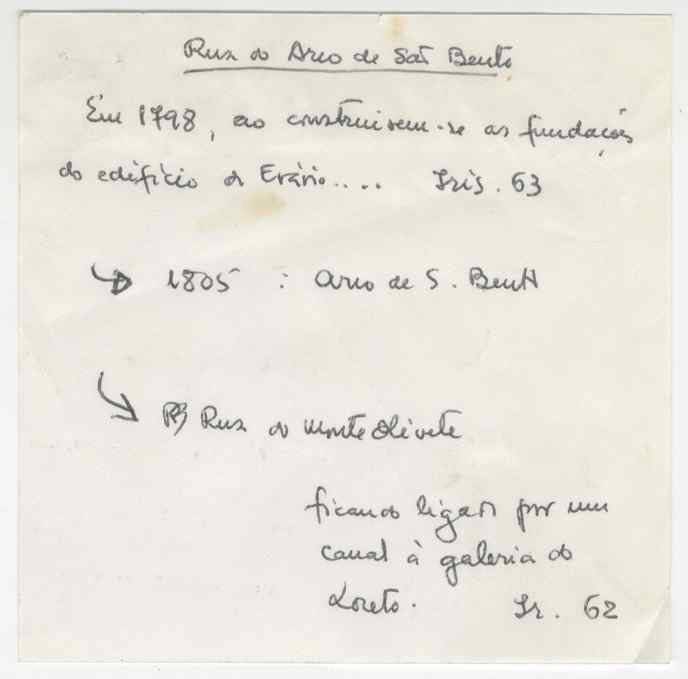 Rua do Arco de São Bento
Em 1798, ao construirem-se as fundações
do edifício do Erário.... Iris. 63
→ 1805 : Arco de S. Bento
→ Rua do Monte Olivete
ficando ligado por um
canal à galeria do
Loreto. Ir. 62